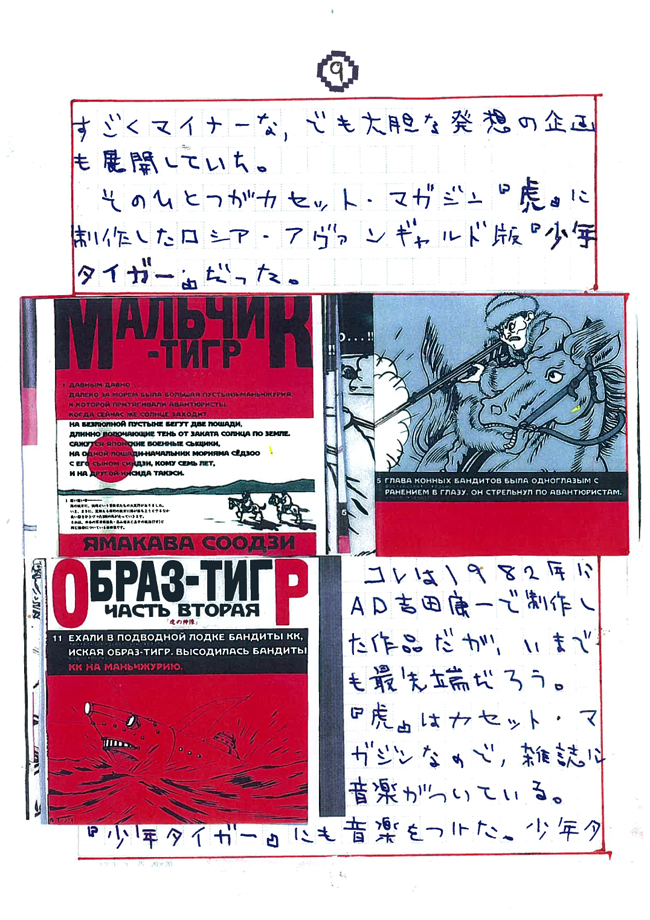 9
すごくマイナーな,でも大胆な発想の企画
も展開していた。
そのひとつがカセット・マガジン『虎』に
制作したロシア・アヴァンギャルド版『少年
タイガー』だった。
МАЛЬЧИК
-ТИГР
1 ДАВНЫМ ДАВНО
ДАЛЕКО ЗА МОРЕМ БЫЛА БОЛЬШАЯ ПУСТЫНЯ МАНЬЧЖУРИЯ
К КОТОРОЙ ПРИТЯГИВАЛИ АВАНТЮРИСТЫ.
КОГДА СЕЙЧАС ЖЕ СОЛНЦЕ ЗАХОДИТ.
НА БЕЗПЮПНОЙ ПУСТЫНЕ БЕГУТ ДВЕ ЛОШАДИ,
ДЛИННО ВОЛОЧАЮЩИЕ ТЕНЬ ОТ ЗАКАТА СОЛНЦА ПО ЗЕМЛЕ.
САЖУТСЯ ЯПОНСКИЕ ВОЕННЫЕ СЫЩИКИ,
НА ОДНОЙ ЛОШАДИ-НАЧАЛЬНИК МОРИЯМА СЁДЗОО
С ЕГО СЫНОМ СИОДЗИ, КОМУ СЕМЬ ЛЕТ,
И НА ДРУГОЙ-КИСИДА ТАКЭСИ.
ЯМАКАВА СООДЗИ
5 ГЛАВА КОННЫХ БАНДИТОВ БЫЛА ОДНОГЛАЗЫМ С
РАНЕНИЕМ В ГЛАЗУ. ОН СТРЕЛЬНУЛ ПО АВАНТЮРИСТАМ.
5
ОБРАЗ-ТИГР
ЧАСТЬ ВТОРАЯ
「虎の神像」
11 ЕХАЛИ В ПОДВОДНОЙ ЛОДКЕ БАНДИТЫ КК,
ИСКАЯ ОБРАЗ-ТИГР. ВЫСОДИЛАСЬ БАНДИТЫ
КК НА МАНЬЧЖУРИЮ.
コレは1982年に
AD吉田康一で制作し
た作品だが,いまで
も最先端だろう。
『虎』はカセット・マ
ガジンなので,雑誌に
音楽がついている。
『少年タイガー』にも音楽をつけた。少年タ